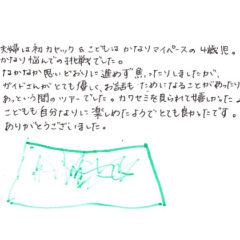 夫婦は初カヤック&こどもは かなりマイペースの4歳児。
かなり悩んでの挑戦でした。
なかなか思いどおりに進めず焦ったりしましたが、
ガイドさんがとても優しく、お話も ためになることがあったり
あっという間のツアーでした。カワセミを見られて嬉しかった♪
こどもも自分なりに楽しめたようでとても良かったです。
ありがとうございました。